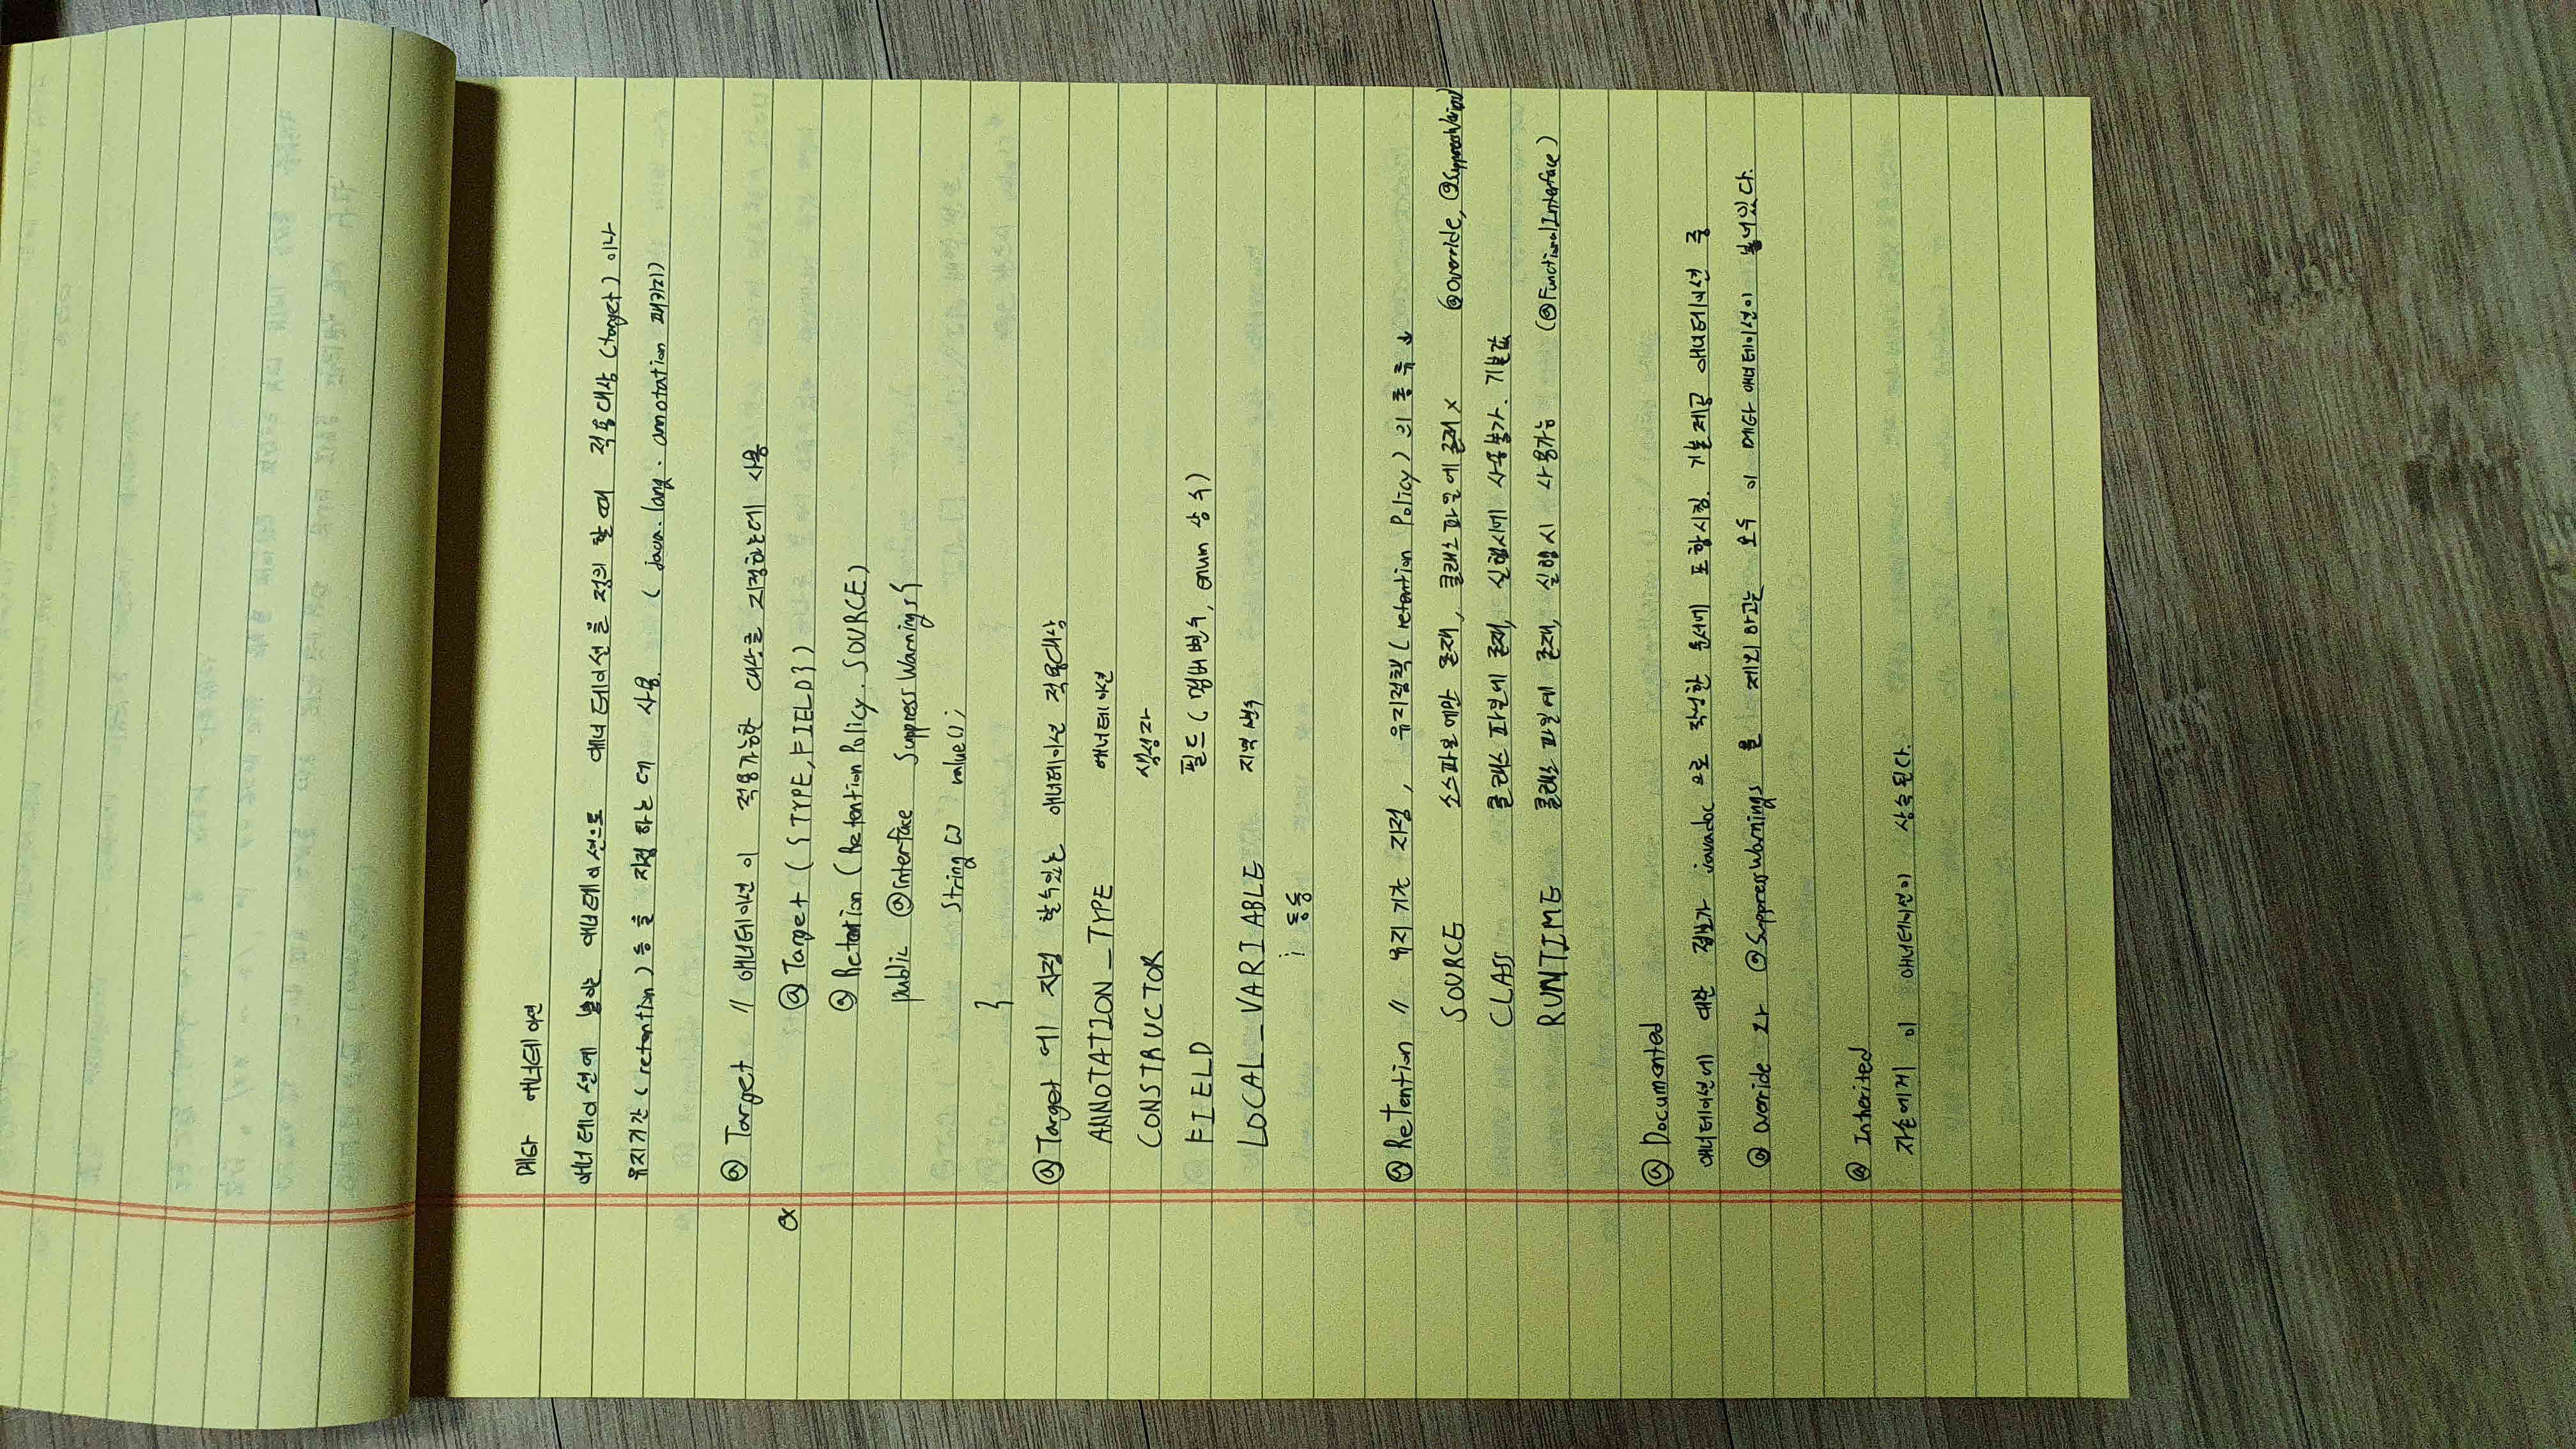 메타 애너테이션
애너테이션에 붙이는 애너테이션으로 애너테이션을 정의 할 때 적용대상 (target) 이나
유지기간 (retention) 등을 지정 하는 데 사용. ( java.lang.annotation 패키지)
@ Target // 애너테이션이 적용가능한 대상을 지정하는데 사용
ex
@ Target ( { TYPE, FIELD } )
@ Retention ( Retention Policy. SOURCE)
public @interface SuppressWarnings {
String [] value();
}
@ Target 에 지정 할수있는 애너테이션 적용대상
ANNOTATION_TYPE 애너테이션
CONSTRUCTOR 생성자
FIELD 필드 ( 멤버변수, enum 상수)
LOCAL_VARIABLE 지역변수
⋮ 등등
@ Retention // 유지 기간 지정, 유지정책 ( retention Policy ) 의 종류 ↓
SOURCE 소스파일에만 존재, 클래스파일에 존재 x @Override, @SuppressWarnings)
CLASS 클래스 파일에 존재, 실행시에 사용불가. 기본값
RUNTIME 클래스 파일에 존재, 실행시 사용가능 (@FunctionalInterface)
@ Documented
애너테이션에 대한 정보가 javadoc 으로 작성한 문서에 포함시킴. 기본제공 애너테이션 중
@ Override 와 @SuppressWarnings 을 제외 하고는 모두 이 메타 애너테이션이 붙어있다.
@ Inherited
자손에게 이 애너테이션이 상속된다.